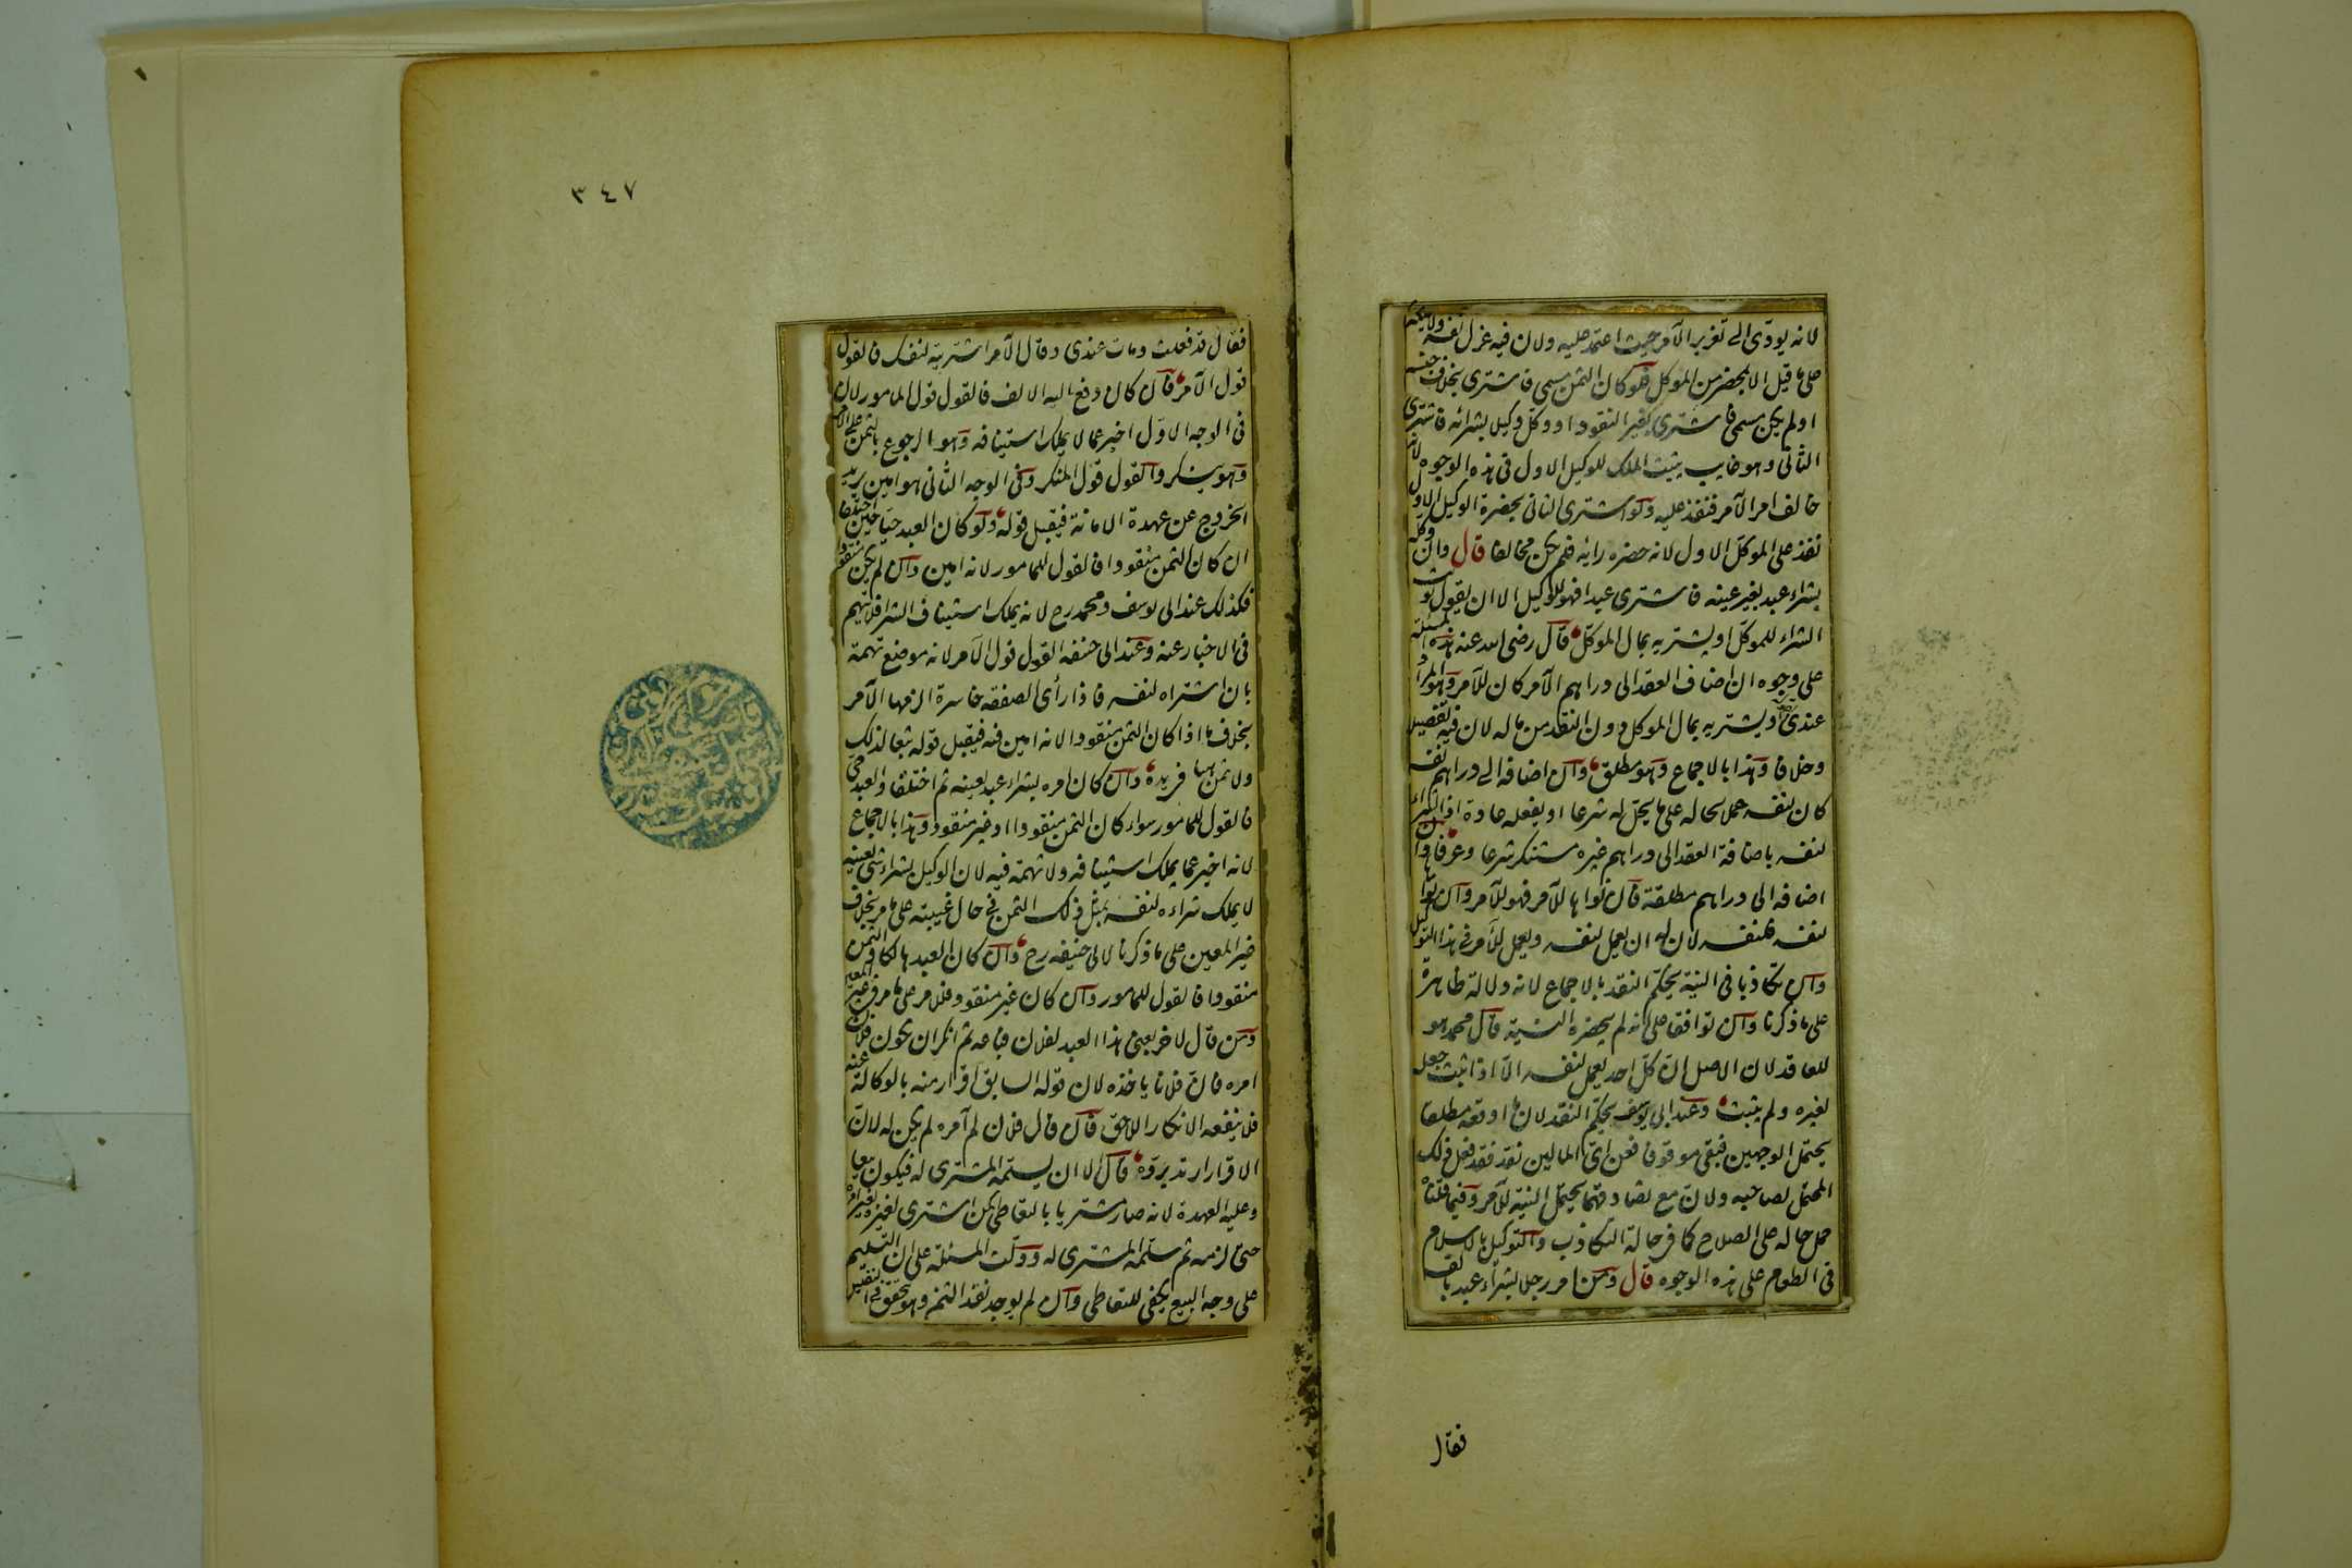 لانه يودّى الى تغرير الآمر حيث اعتمد عليه ولان فيه عزل نفسه ولا يملكه
على ما قيل الا بمحضر من الموكل فلو كان الثمن مسمى فاشترى بخلاف جنسه
او لم يكن مسمى فاشترى بغير النقود او وكل وكيلا بشرائه فاشترى
الثانى وهو غايب يثبت الملك للوكيل الاول فى هذه الوجوه لانه
خالف امر الآمر فنفذ عليه ولو اشترى الثانى بحضرة الوكيل الاول
نفذ على الموكل الاول لانه حضره رايه فلم يكن مخالفا قال وان وكله
بشراء عبد بغير عينه فاشترى عبدا فهو للوكيل الا ان يقول نويت
الشراء للموكل او يشتريه بمال الموكل قال رضى الله عنه هذه المسئلة
على وجوه ان اضاف العقد الى دراهم الآمر كان للآمر وهو المراد
عندى او يشتريه بمال الموكل دون النقد من ماله لان فيه تفصيلا
وخلافا وهذا بالاجماع وهو مطلق وان اضافه الى دراهم نفسه
كان لنفسه حملا لحاله على ما يحل له شرعا او يفعله عادة اذ الشراء
لنفسه باضافة العقد الى دراهم غيره مستنكر شرعا وعرفا وان
اضافه الى دراهم مطلقة فان نواها للآمر فهو للآمر وان نواها
لنفسه فلنفسه لان له ان يعمل لنفسه ويعمل للآمر فى هذا التوكيل
وان تكاذبا فى النية يحكّم النقد بالاجماع لانه دلالة ظاهرة
على ما ذكرنا وان توافقا على انه لم يحضره النية قال محمد هو
للعاقد لان الاصل ان كل احد يعمل لنفسه الا اذا ثبت جعله
لغيره ولم يثبت وعند ابى يوسف يحكّم النقد لان ما اوقعه مطلقا
يحتمل الوجهين فبقى موقوفا فمن اىّ المالين نقد فقد فعل ذلك
المحتمل لصاحبه ولان مع تصادقهما يحتمل النية للآمر وفيما قلناه
حمل حاله على الصلاح كما فى حالة التكاذب والتوكيل بالاسلام
فى الطعام على هذه الوجوه قال ومن امر رجلا بشراء عبد بالف
فقال
٣٤٧
فقال قد فعلت ومات عندى وقال الآمر اشتريته لنفسك فالقول
قول الآمر فان كان دفع اليه الالف فالقول قول المامور لان
فى الوجه الاول اخبر عما لا يملك استينافه وهو الرجوع بالثمن على الآمر
وهو ينكر والقول قول المنكر وفى الوجه الثانى هو امين يريد
الخروج عن عهدة الامانة فيقبل قوله ولو كان العبد حيا حين اختلفا
ان كان الثمن منقودا فالقول للمامور لانه امين وان لم يكن منقودا
فكذلك عند ابى يوسف ومحمد رح لانه يملك استيناف الشرا فلا يتهم
فى الاخبار عنه وعند ابى حنيفه القول قول الآمر لانه موضع تهمة
بان اشتراه لنفسه فاذا رأى الصفقه خاسرة الزمها الآمر
بخلاف ما اذا كان الثمن منقودا لانه امين فيه فيقبل قوله تبعا لذلك
ولا ثمن ههنا فى يده وان كان امره بشراء عبد بعينه ثم اختلفا والعبد حى
فالقول للمامور سواء كان الثمن منقودا او غير منقود وهذا بالاجماع
لانه اخبر عما يملك استينافه ولا تهمة فيه لان الوكيل بشراء شئ بعينه
لا يملك شراءه لنفسه بمثل ذلك الثمن فى حال غيبته على ما مر بخلاف
غير المعين على ما ذكرنا لابى حنيفه رح وان كان العبد هالكا والثمن
منقودا فالقول للمامور وان كان غير منقود فللآمر على ما مر فى غير المعين
ومن قال لاخر بعنى هذا العبد لفلان فباعه ثم انكر ان يكون فلان
امره فان فلانا ياخذه لان قوله السابق اقرار منه بالوكالة عنه
فلا ينفعه الانكار اللاحق فان قال فلان لم آمره لم يكن له لان
الاقرار ارتد برده قال الا ان يسلمه المشترى له فيكون بيعا
وعليه العهدة لانه صار مشتريا بالتعاطى كمن اشترى لغيره بغير امره
حتى لزمه ثم سلمه المشترى له ودلت المسئلة على ان التسليم
على وجه البيع يكفى للتعاطى وان لم يوجد نقد الثمن وهو يتحقق فى النفيس